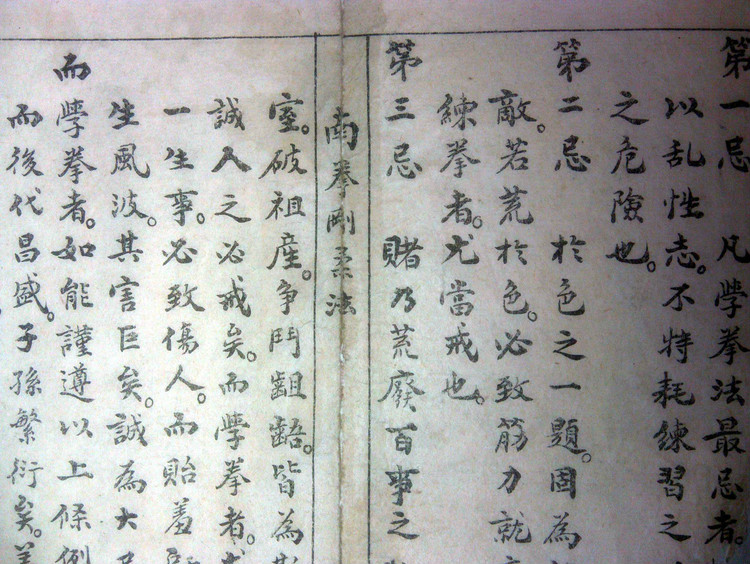 第一忌 凡學拳法最忌者。
以乱性志。不特耗練習之
之危險也。
第二忌 於色之一題。固為
敵。若荒於色。必致筋力就
練拳者。尤當戒也。
第三忌 賭乃荒廢百事之
南拳剛柔法
室。破祖産。争鬥齟齬。皆為
誠人之必戒矣。而學拳者。
一生事。必致傷人。而貽羞
生風波。其害巨矣。誠為大
而學拳者。如能謹遵以上條例
而後代昌盛。子孫繁衍矣。